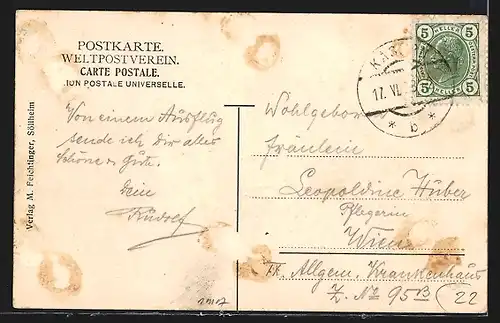 POSTKARTE.
WELTPOSTVEREIN.
CARTE POSTALE.
ION POSTALE UNIVERSELLE.
Verlag M. Feichtinger, Söllheim
Von einem Ausflug
sende ich Dir alles
Schöne & Gute.
Dein
Rudolf
5 HELLER 5
5 HELLER 5
17. VI.
* b *
Wohlgeboren
Fräulein
Leopoldine Huber
Pflegerin
Wien
Allgem. Krankenhaus
Z. No 95B
22